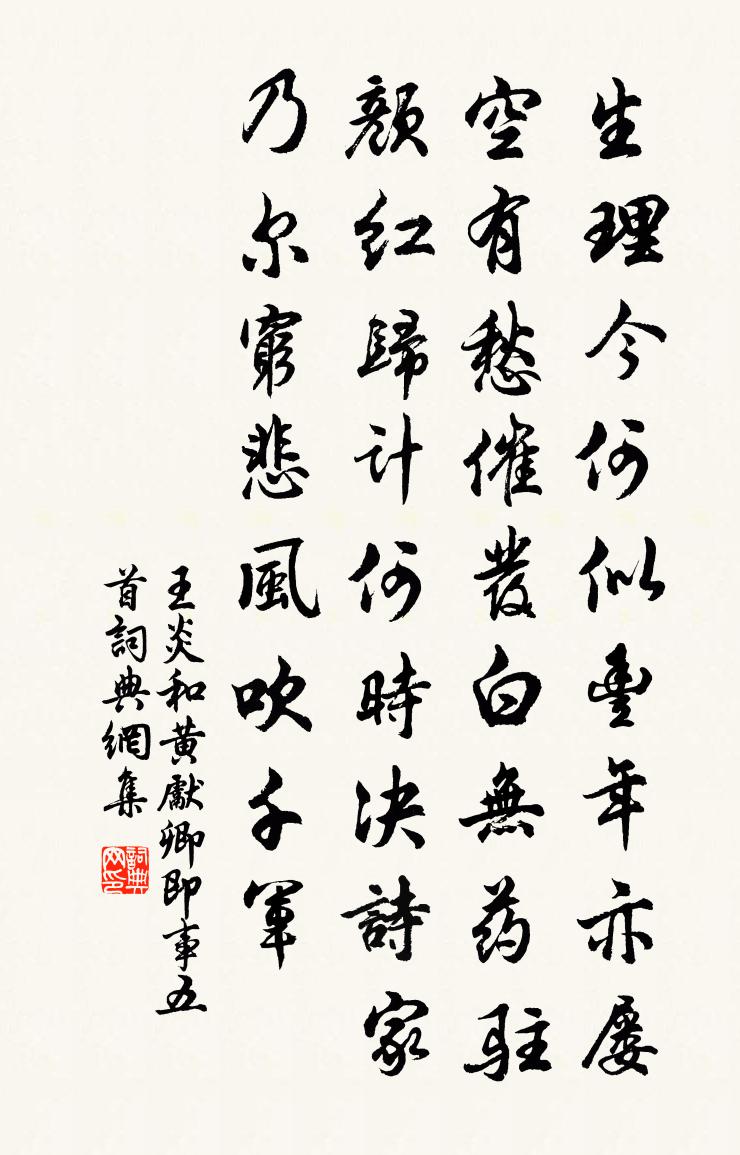 生理今何似豐年亦屢
空有愁催發白無药駐
顏红歸计何時决詩家
乃尔窮悲風吹千軍
王炎和黄獻卿即事五
首詞典網集
詞典
网印